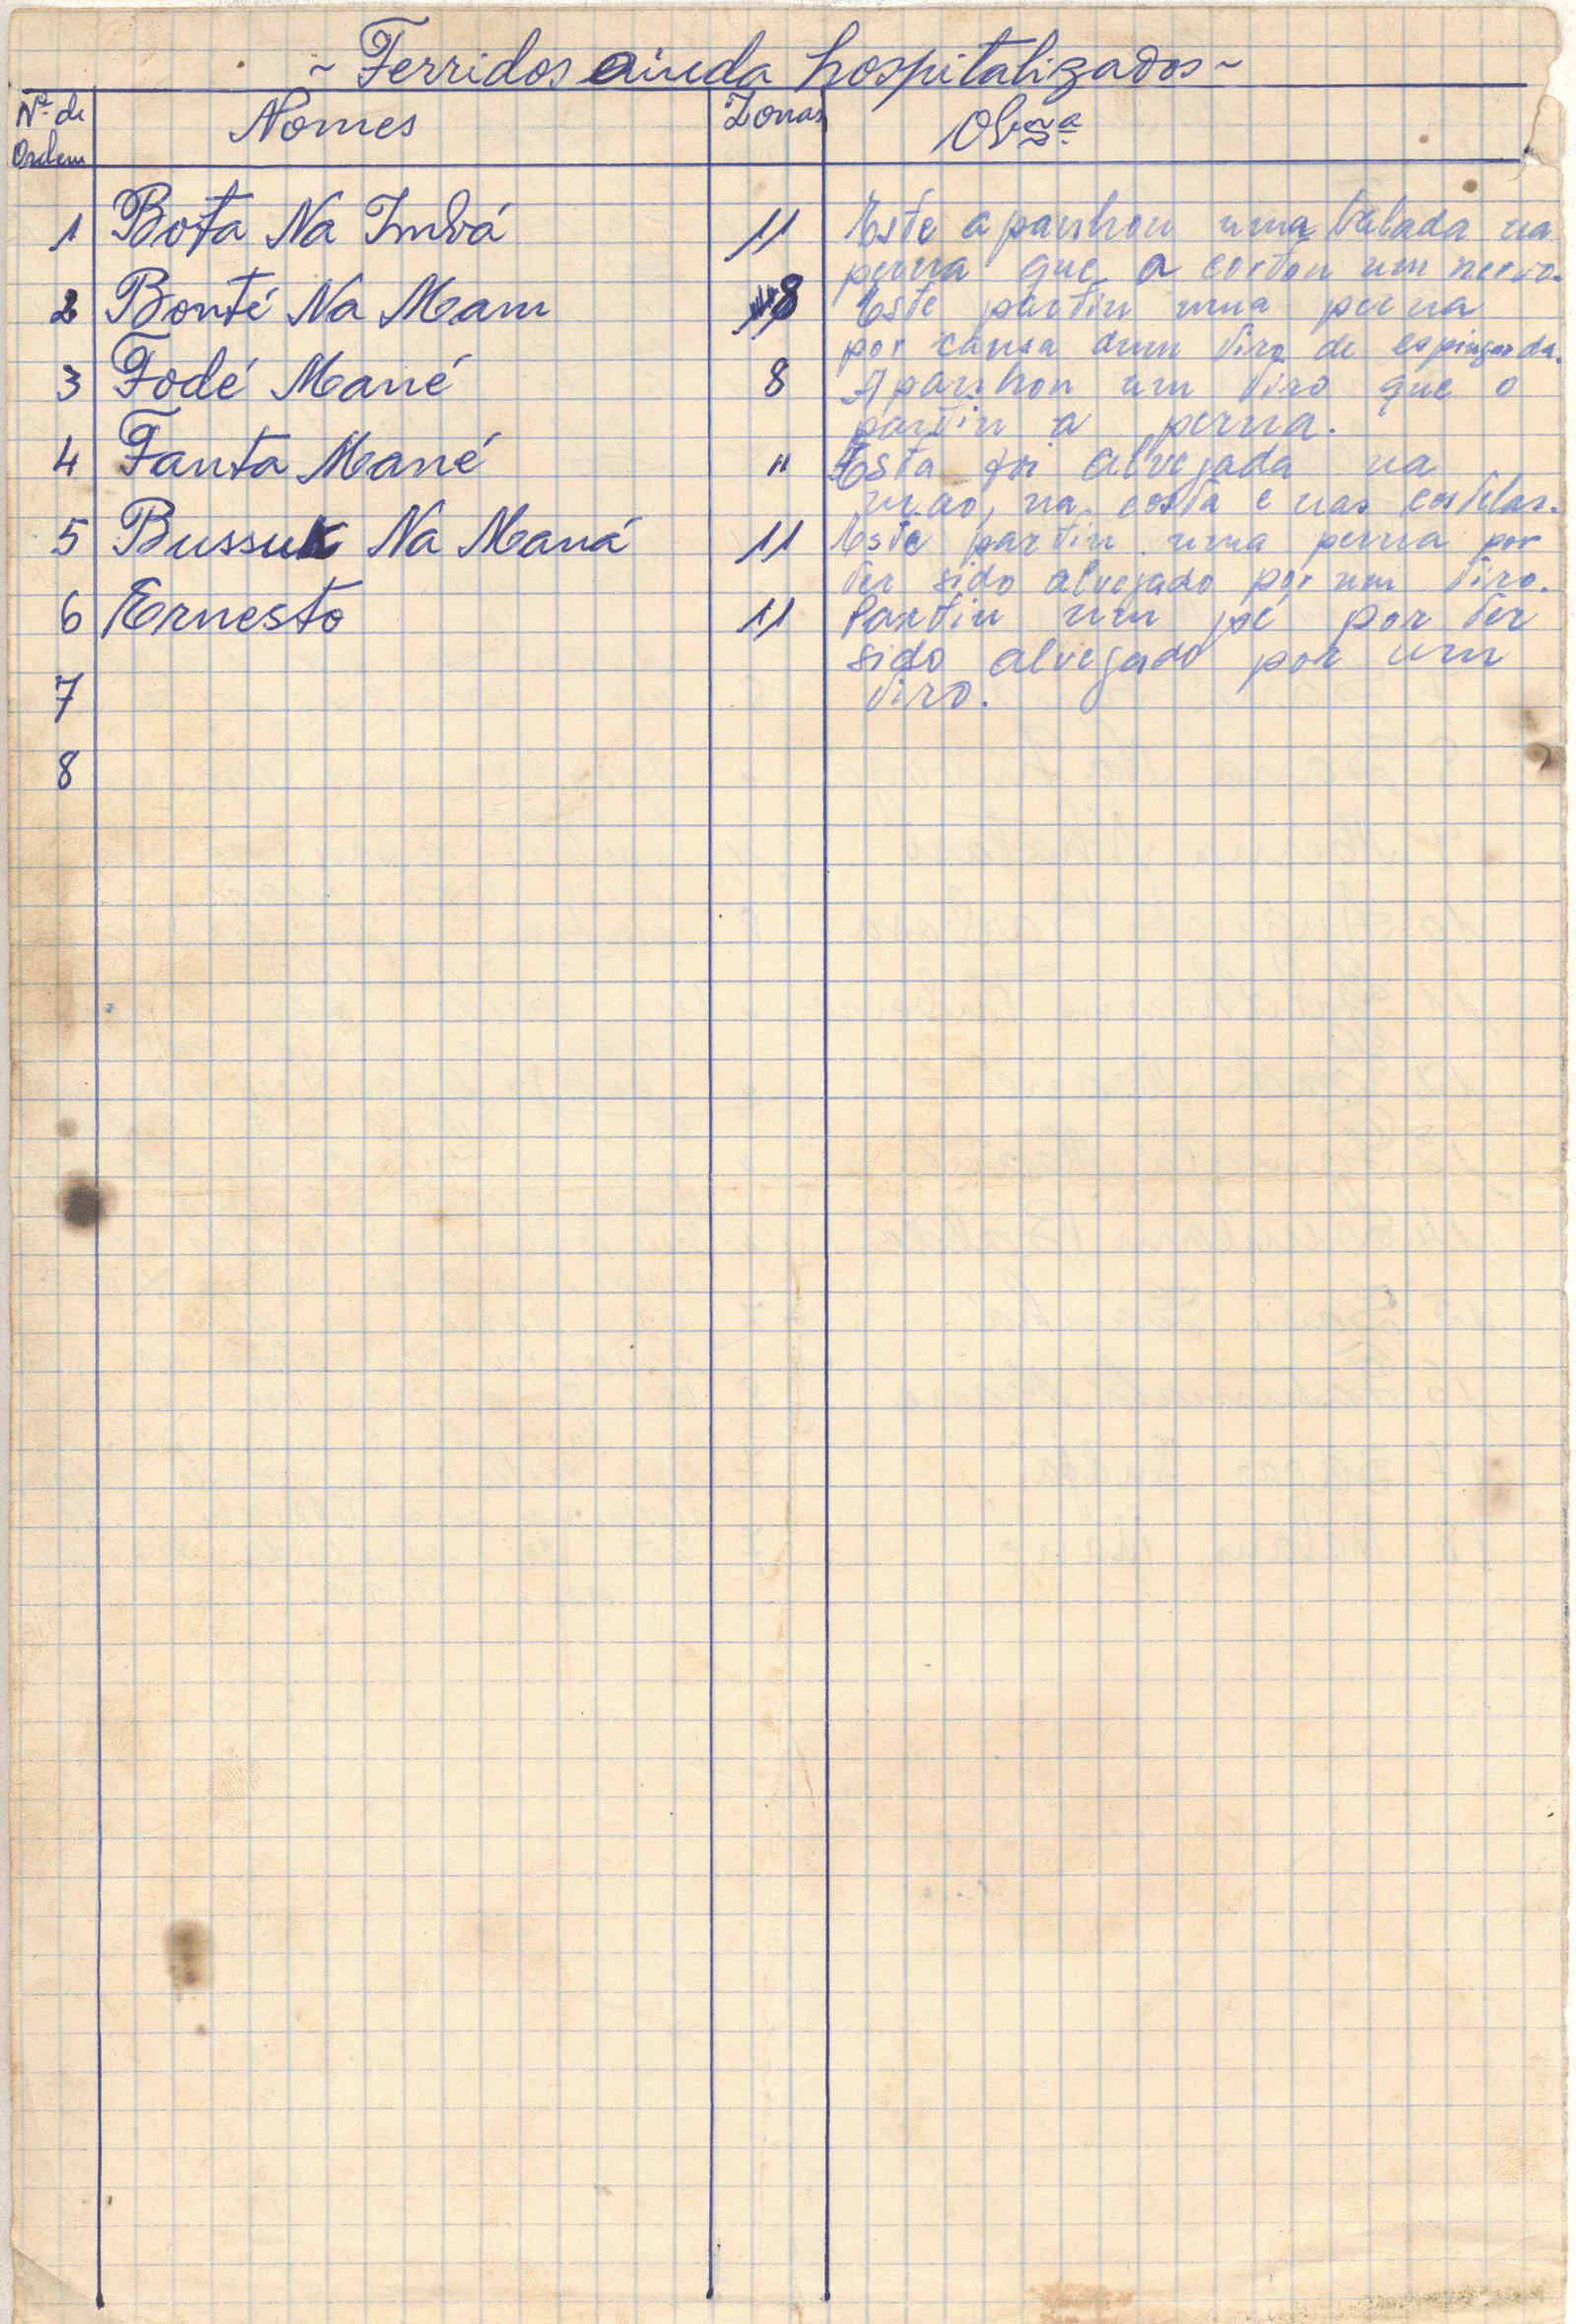 ~ Ferridos ainda hospitalizados ~
Nº de Ordem Nomes Zonas Obsª
1 Bota Na Imbá 11 Este apanhou uma balada na
perna que a cortou um nervo.
2 Bonté Na Mam 8 Este partiu uma perna
por causa dum tiro de espingarda.
3 Fodé Mané 8 Apanhou um tiro que o
partiu a perna.
4 Fanta Mané " Esta foi alvejada na
mão, na costa e nas costelas.
5 Bussuk Na Maná 11 Este partiu uma perna por
ter sido alvejado por um tiro.
6 Ernesto 11 Partiu um pé por ter
sido alvejado por um
7 tiro.
8